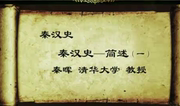 秦汉史
秦汉史—简述（一
秦晖 清华大学 教授